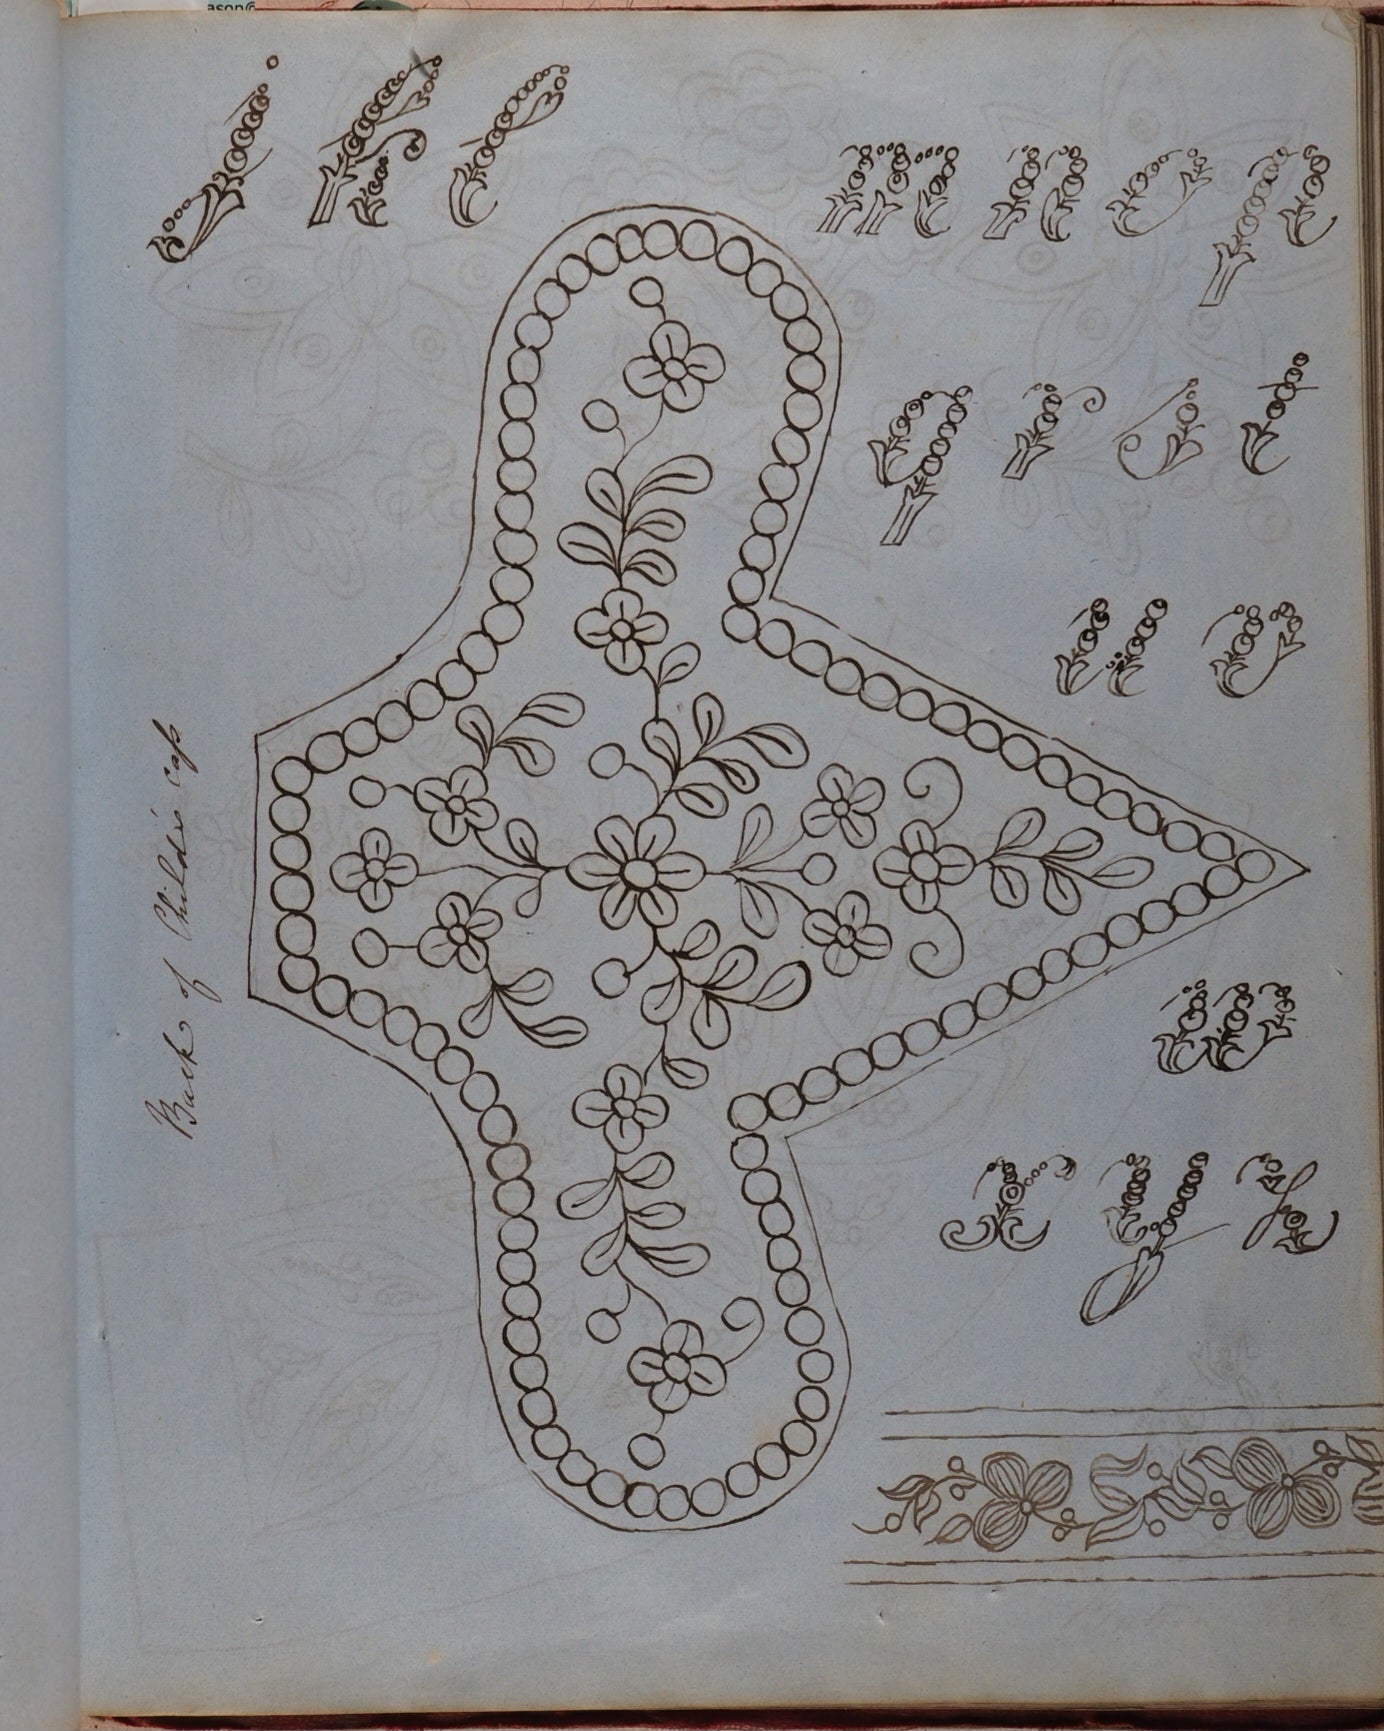 j k l
m n o p
q r s t
u v
w
x y z
Back of Child's Cap